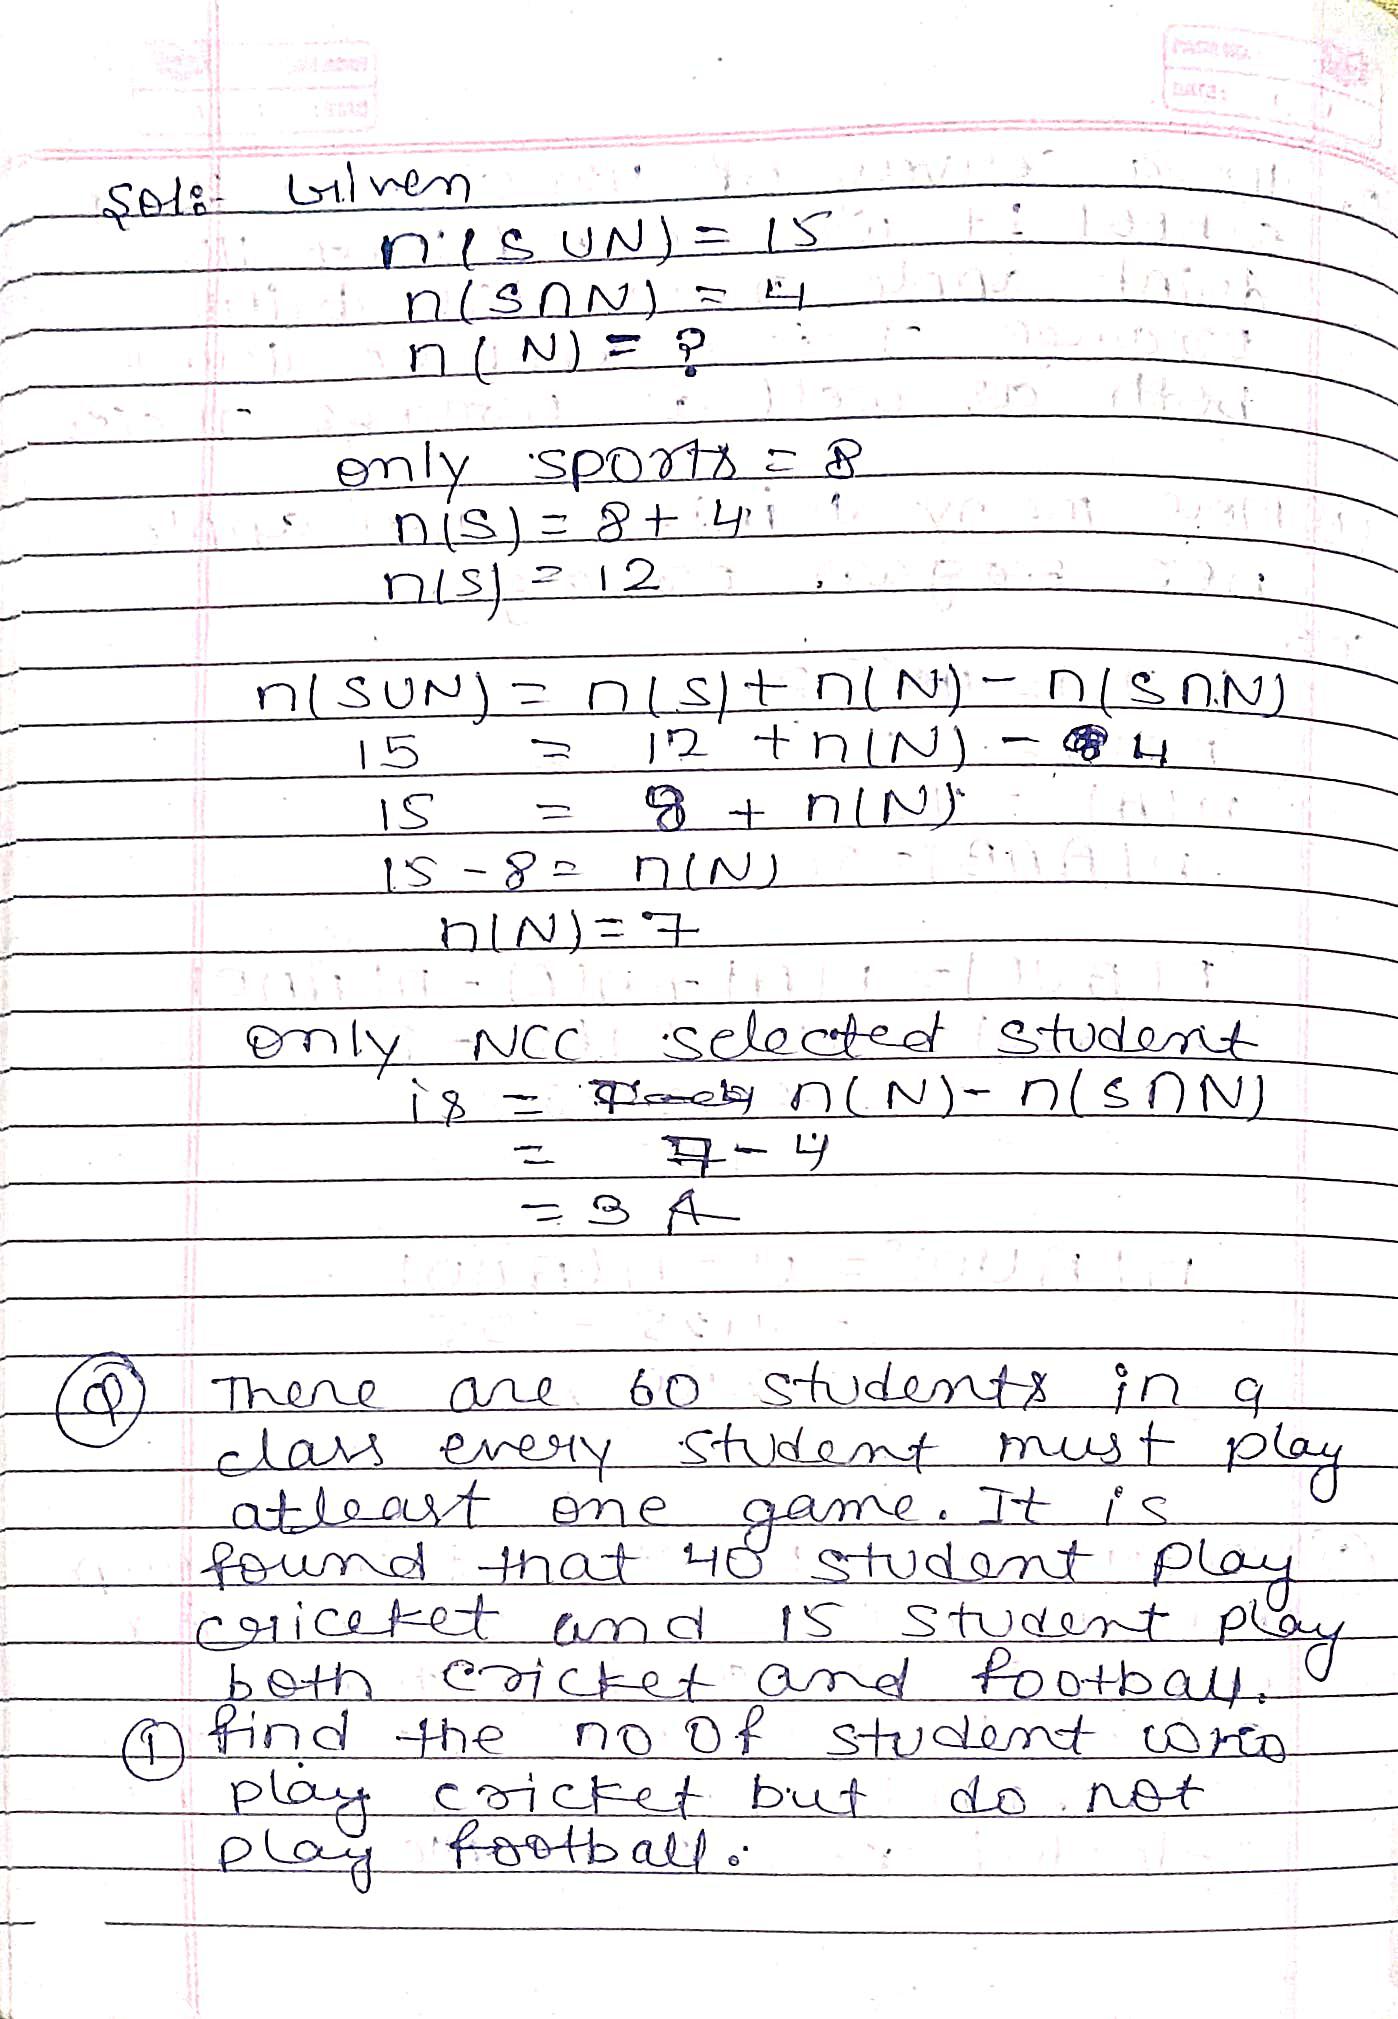 Sol:- Given
n(SUN) = 15
n(S∩N) = 4
n(N) = ?
only sports = 8
n(S) = 8 + 4
n(S) = 12
n(SUN) = n(S) + n(N) - n(S∩N)
15 = 12 + n(N) - 4
15 = 8 + n(N)
15 - 8 = n(N)
n(N) = 7
only NCC selected student
is = n(N) - n(S∩N)
= 7 - 4
= 3 A
Q There are 60 students in a
class every student must play
atleast one game. It is
found that 40 student play
criceket and 15 student play
both cricket and football.
1 find the no of student who
play cricket but do not
play football.